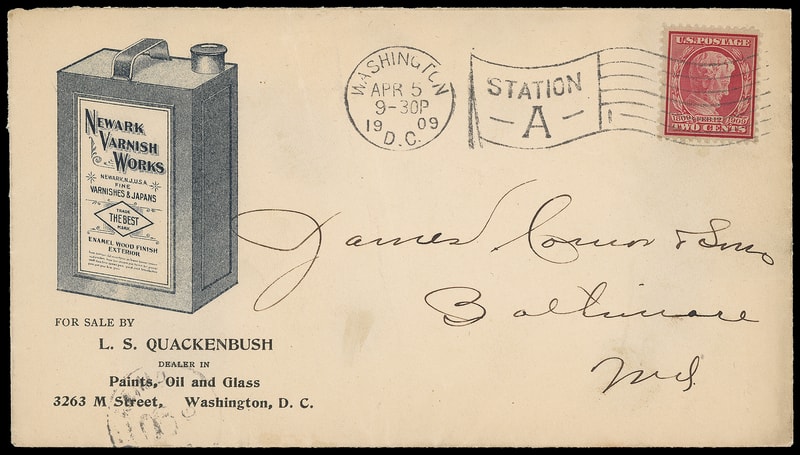 NEWARK
VARNISH
WORKS
NEWARK, N.J. U.S.A.
FINE
VARNISHES & JAPANS
TRADE
THE BEST
MARK
ENAMEL WOOD FINISH
EXTERIOR
FOR SALE BY
L. S. QUACKENBUSH
DEALER IN
Paints, Oil and Glass
3263 M Street, Washington, D. C.
WASHINGTON
APR 5
9-30P
19 09
D.C.
STATION
A
U.S. POSTAGE
1809 FEB. 12 1909
TWO CENTS
James Connor & Sons
Baltimore
Md.